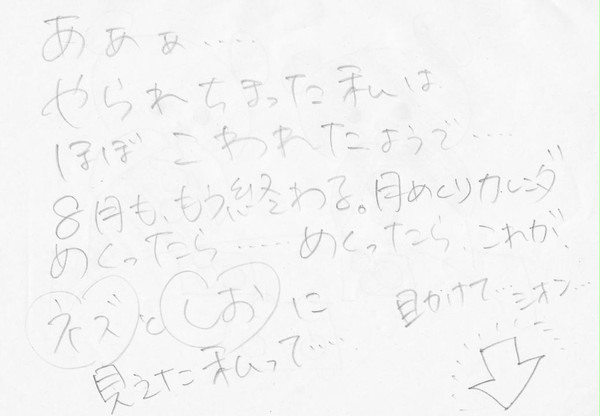 あぁぁ……
やられちまった私は
ほぼこわれたようで……
8月も、もう終わる。月めくりカレンダ
めくったら……めくったら、これが、
ネズとしおに
見えた私って……
目かけて…シオン…